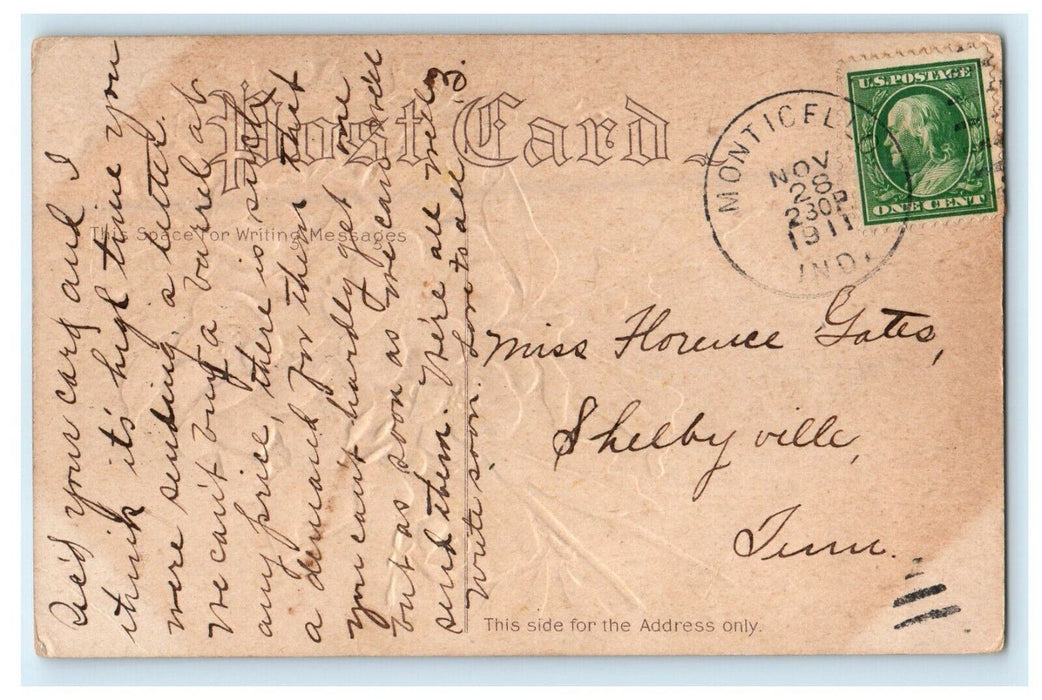 Post Card
U.S. POSTAGE
ONE CENT
MONTICELLO
NOV
28
230P
1911
IND.
This Space For Writing Messages
Rec'd your card and I
think it's high time you
were sending a letter.
We can't buy a barrel at
any price, there is such
a demand for them that
you can't hardly get one
but as soon as we can we'll
send them. We're all well.
Write soon. Love to all
Miss Florence Gates,
Shelbyville,
Tenn.
This side for the Address only.